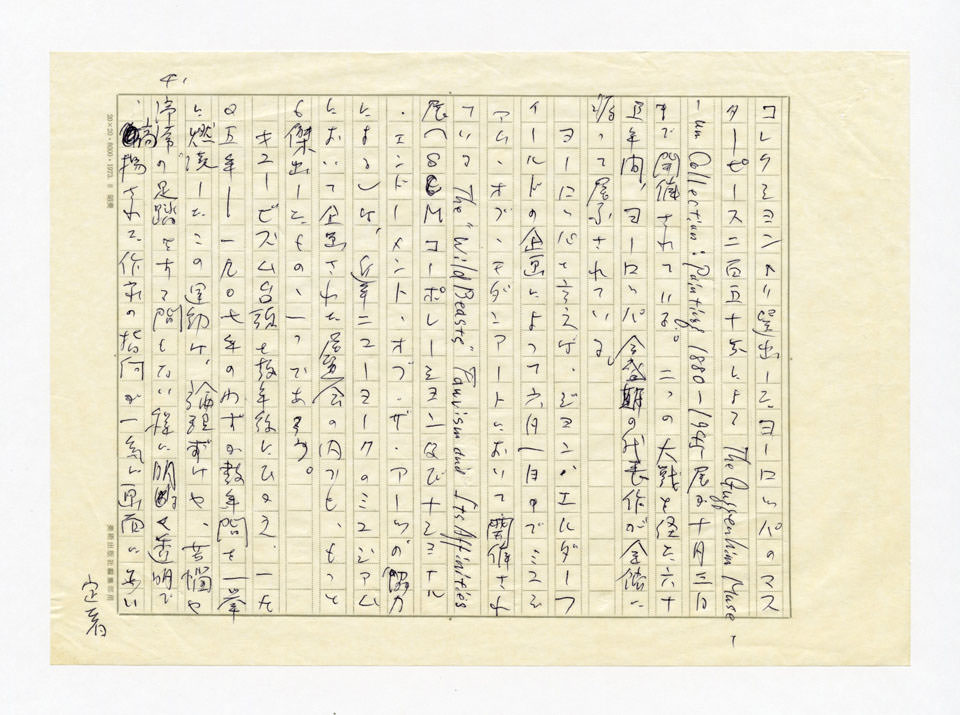 4.
コレクション より選出した、ヨーロッパのマス
ターピース二百五十点による The Guggenheim Muse-
um Collection: Paintings 1880-1945 展が十月三日
まで開催されている。二つの大戦を経た六十
五年間、ヨーロッパ 代表作が全館に
亘って展示されている。
ヨーロッパと言えば、ジョン・エルダーフ
ィールドの企画によって六月一日までミュジ
アム・オブ・モダンアートにおいて開催され
ている The "Wild Beasts" Fauvism and Its Affinities
展(SCMコーポレーション及びナショナル
・エンドーメント・オブ・ザ・アーツの協力
による)は、近年ニューヨークのミュジアム
において企画された展覧会の内でも、もっと
も傑出したものの一つであろう。
キュービズム台頭を数年後にひかえ、一九
〇五年ー一九〇七年のわずか数年間を一挙
に燃焼したこの運動は、論理ずけや、苦悩や
停滞の足踏をする間もない程に明るく透明で
、高揚された作家の指向が一気に画面にあい
定着
20×20